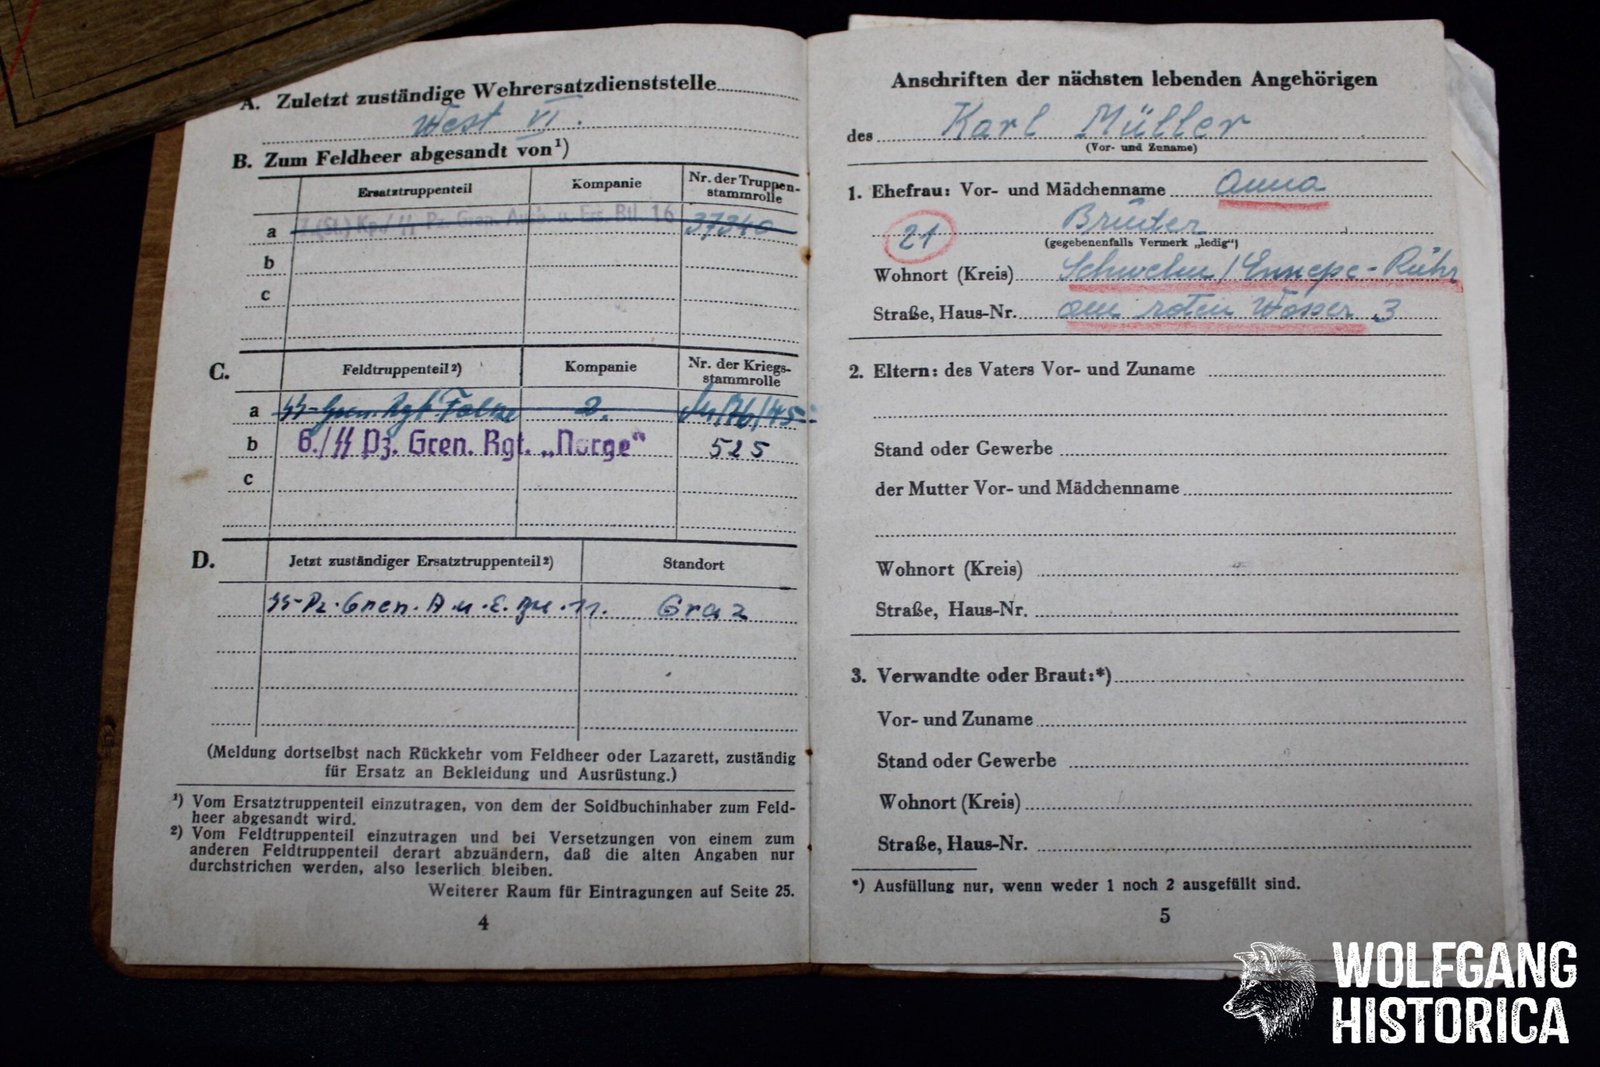 A. Zuletzt zuständige Wehrersatzdienststelle
West VI.
B. Zum Feldheer abgesandt von¹)
Ersatztruppenteil Kompanie Nr. der Truppen-
stammrolle
a 7.(St.) Kp./ SS Pz. Gren. Ausb. u. Ers. Btl. 16 37340
b
c
C. Feldtruppenteil²) Kompanie Nr. der Kriegs-
stammrolle
a SS-Gren. Rgt 2.
b 6./SS Pz. Gren. Rgt. „Norge“ 525
c
D. Jetzt zuständiger Ersatztruppenteil²) Standort
SS-Pz. Gren. A. u. E. 11. Graz
(Meldung dortselbst nach Rückkehr vom Feldheer oder Lazarett, zuständig
für Ersatz an Bekleidung und Ausrüstung.)
¹) Vom Ersatztruppenteil einzutragen, von dem der Soldbuchinhaber zum Feld-
heer abgesandt wird.
²) Vom Feldtruppenteil einzutragen und bei Versetzungen von einem zum
anderen Feldtruppenteil derart abzuändern, daß die alten Angaben nur
durchstrichen werden, also leserlich bleiben.
Weiterer Raum für Eintragungen auf Seite 25.
4
Anschriften der nächsten lebenden Angehörigen
des Karl Müller
(Vor- und Zuname)
1. Ehefrau: Vor- und Mädchenname Anna
21 Brüder
(gegebenenfalls Vermerk „ledig“)
Wohnort (Kreis) Schwelm/Ennepe-Ruhr
Straße, Haus-Nr. am roten Wasser 3
2. Eltern: des Vaters Vor- und Zuname
Stand oder Gewerbe
der Mutter Vor- und Mädchenname
Wohnort (Kreis)
Straße, Haus-Nr.
3. Verwandte oder Braut:*)
Vor- und Zuname
Stand oder Gewerbe
Wohnort (Kreis)
Straße, Haus-Nr.
*) Ausfüllung nur, wenn weder 1 noch 2 ausgefüllt sind.
5
WOLFGANG
HISTORICA